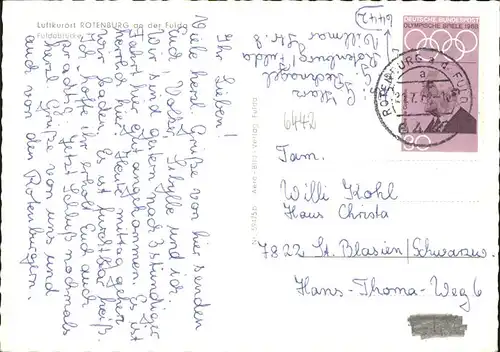 Luftkurort ROTENBURG an der Fulda
Fuldabrücke
Ihr Lieben!
Viele herzl. Grüße von hier senden
Euch Volker, Sibylle und ich.
Wir sind gestern nach 3stündiger
Fahrt hier gut angekommen. Es ist
herrlich hier. Heute mittag gehen
wir baden. Es ist furchtbar heiß.
Ich hoffe ihr erholt Euch auch
prächtig. Jetzt Schluß nochmals
herzl. Grüße von uns und
auch von den Rotenburgern.
Verlag Fulda
6442
Rotenburg/Fulda
Str. 8
DEUTSCHE BUNDESPOST
OLYMPISCHE SPIELE 1968
30
ROTENBURG a. d. FULDA
a
6442
6442
Fam.
Willi Kohl
Haus Christa
7822 St. Blasien/Schwarzw.
Hans-Thoma-Weg 6